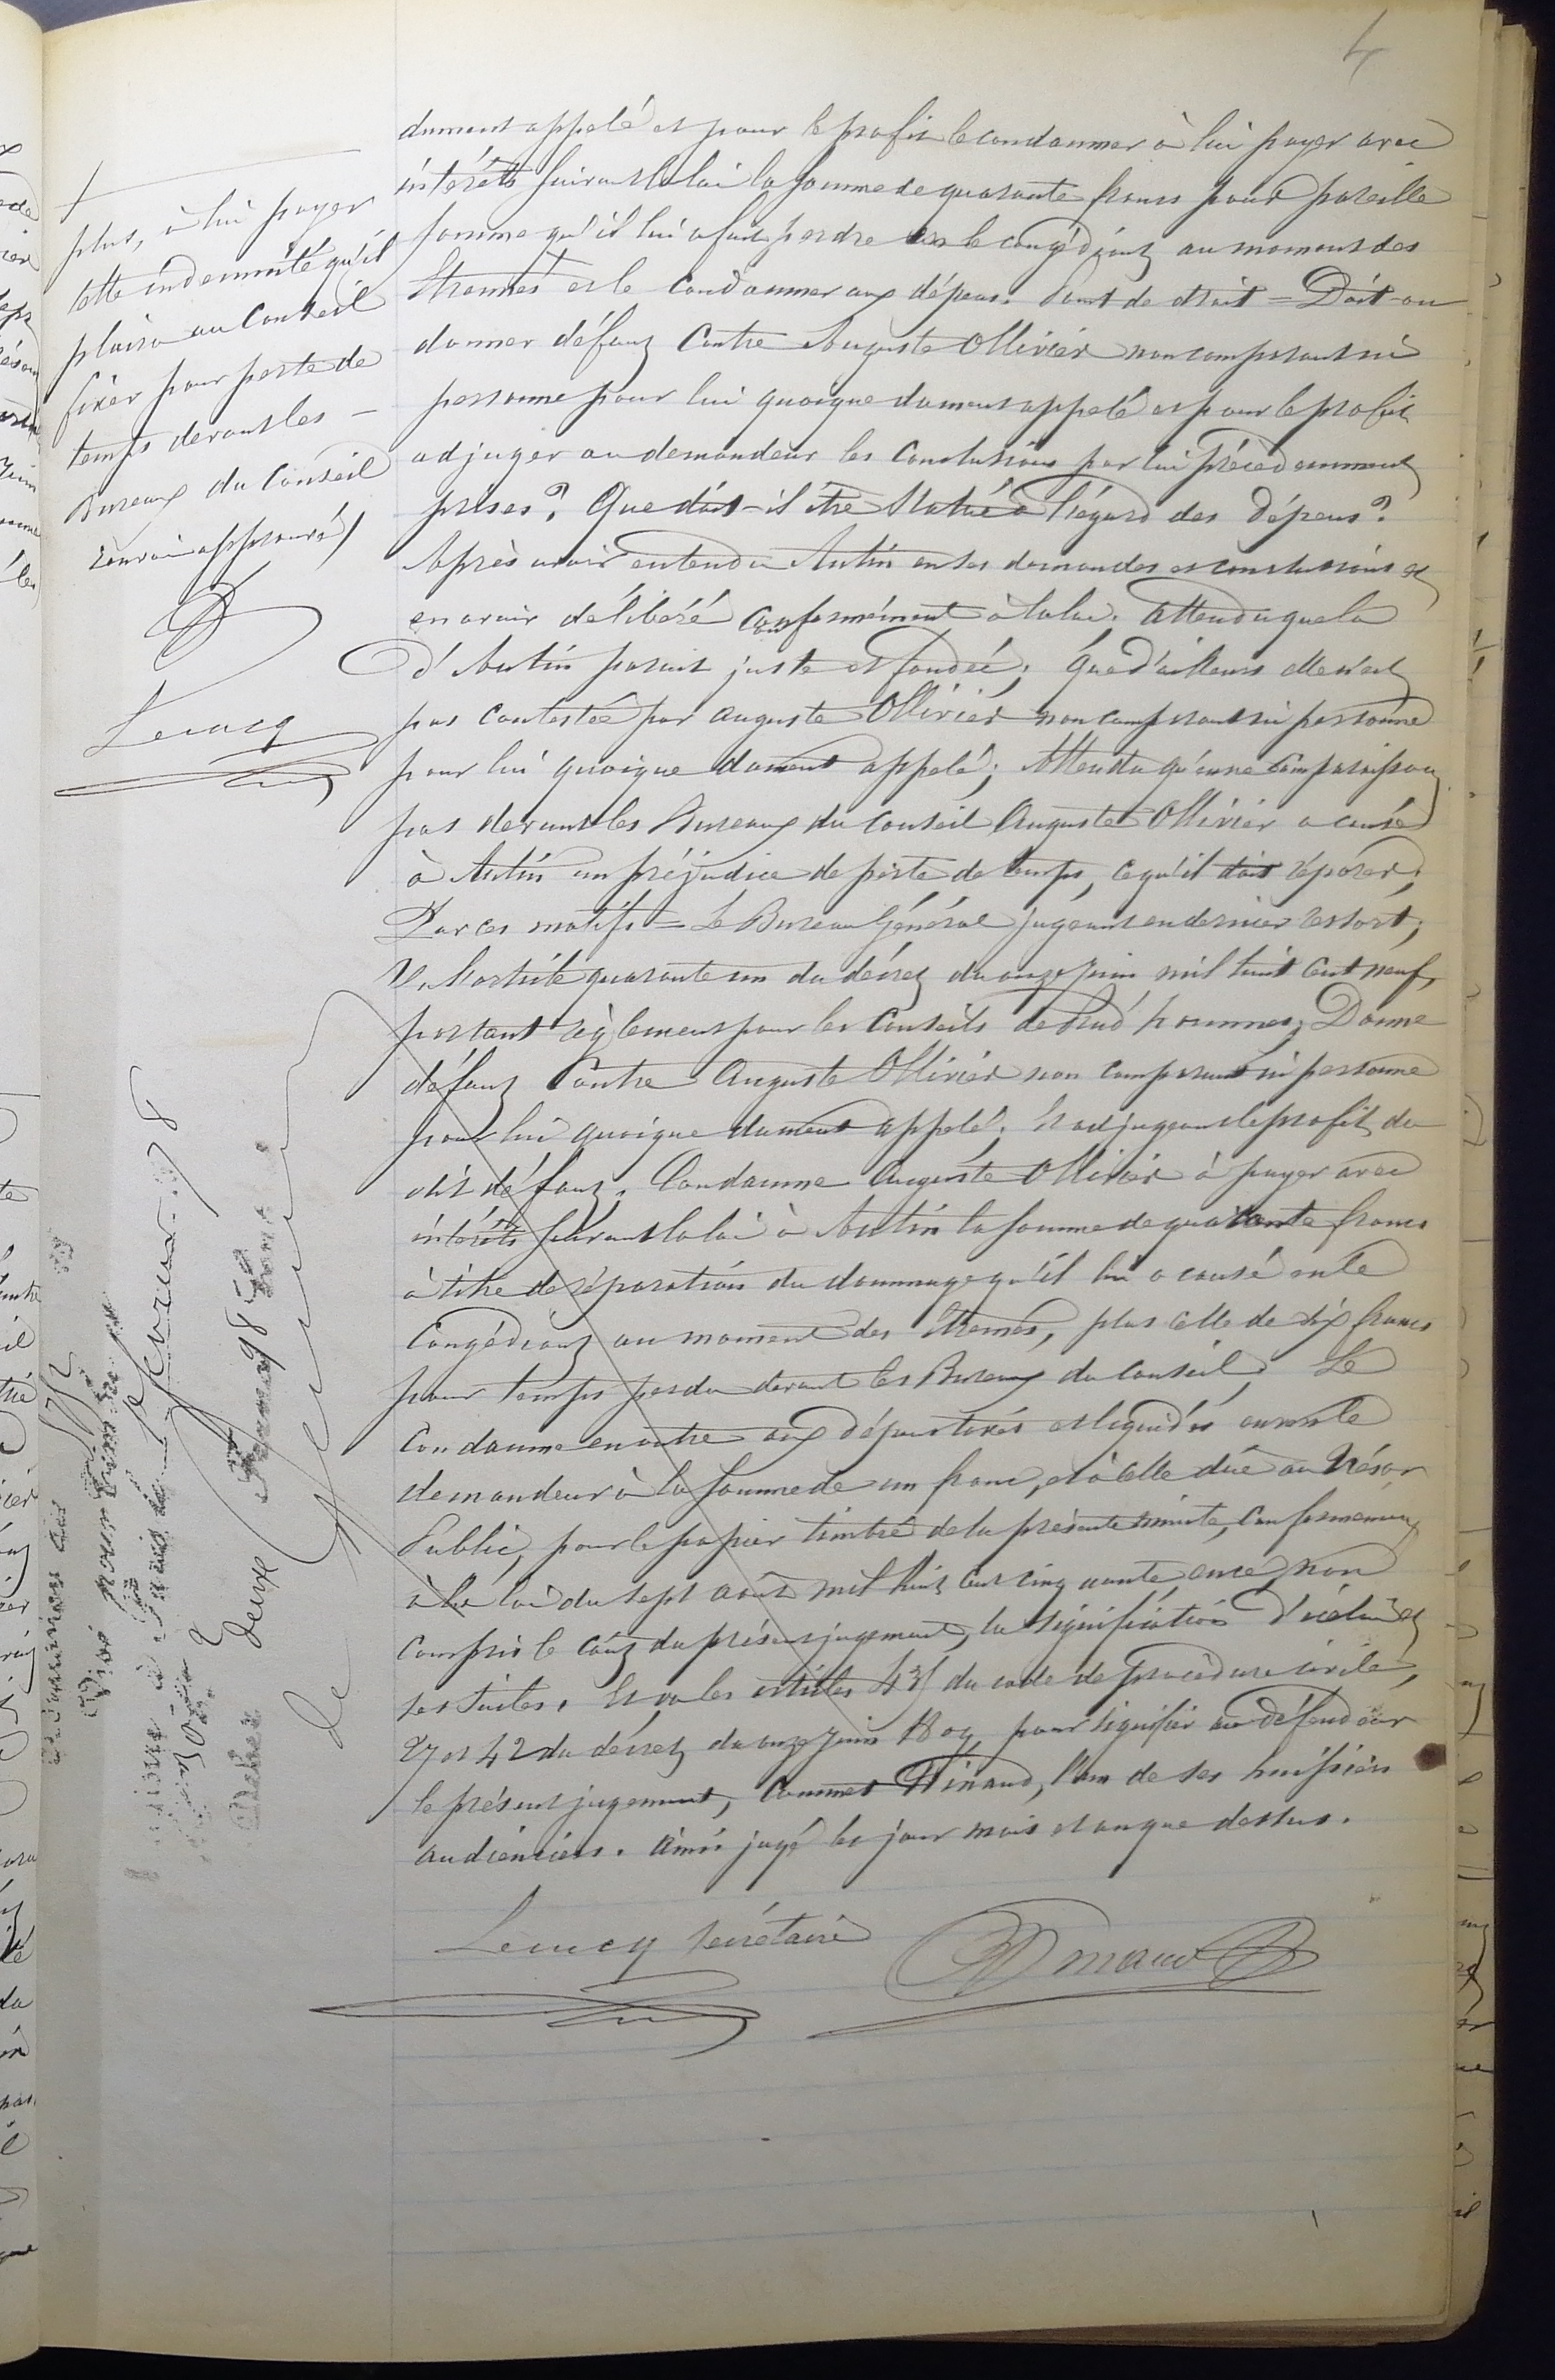 4
dument appelé et pour le profit le condamner à lui payer avec
intérêts suivant la loi la somme de quarante francs pour pareille
somme qu'il lui a fait perdre en le congédiant au moment des
Etrennes et le condamner aux dépens. Point de droit = Doit-on
donner défaut contre Auguste Ollivier non comparant ni
personne pour lui quoique dument appelé et pour le profit
adjuger au demandeur les conclusions par lui précédemment
prises? Que doit-il être statué à l'égard des dépens?
Après avoir entendu Autin en ses demandes et conclusions et
en avoir délibéré conformément à la loi. Attendu que la
d'Autin parait juste et fondée; Que d'ailleurs elle n'est
pas contestée par Auguste Ollivier non comparant ni personne
pour lui quoique dument appelé; Attendu qu'en ne comparaissant
pas devant les Bureaux du Conseil Auguste Ollivier a causé
à Autin un préjudice de perte de temps, ce qu'il doit réparer;
Par ces motifs = Le Bureau Général jugeant en dernier ressort;
Vu l'article quarante un du décret du onze Juin mil huit cent neuf,
portant règlement pour les Conseils de Prud'hommes; Donne
défaut contre Auguste Ollivier non comparant ni personne
pour lui quoique dument appelé; Et adjugeant le profit du
dit défaut; Condamne Auguste Ollivier à payer avec
intérêts suivant la loi à Autin la somme de quarante francs
à titre de réparation du dommage qu'il lui a causé en le
Congédiant au moment des Etrennes, plus celle de dix francs
pour temps perdu devant les Bureaux du Conseil. Le
condamne en outre aux dépens taxés et liquidés envers le
demandeur à la somme de un franc, et à celle due au Trésor
Public, pour le papier timbré de la présente minute, conformément
à la loi du sept août mil huit cent cinquante, ence, non
compris le coût du présent jugement, la signification d'icelui et
ses suites. Et vu les articles 435 du code de procédure civile,
27 et 42 du décret du onze Juin 1809, pour signifier au défendeur
le présent jugement, Commet l'un de ses huissiers
audienciers. Ainsi jugé les jour mois et an que dessus.
Lecucq secrétaire
plus, à lui payer
telle indemnité qu'il
plaira au Conseil
fixer pour perte de
temps devant les –
Bureaux du Conseil
renvoi approuvé
Lecucq
février 78
deux
De